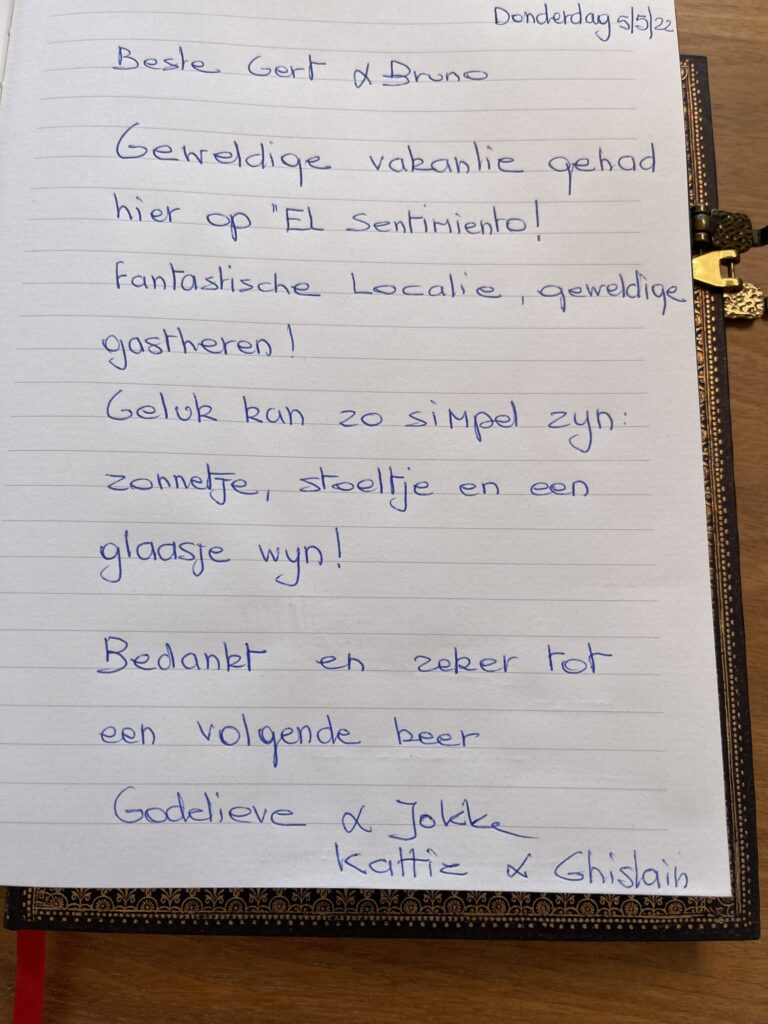 Donderdag 5/5/22
Beste Gert & Bruno
Geweldige vakantie gehad
hier op "El Sentimiento!
Fantastische Localie, geweldige
gastheren!
Geluk kan zo simpel zyn:
zonnetje, stoeltje en een
glaasje wyn!
Bedankt en zeker tot
een volgende beer
Godelieve & Jokke
Kattie & Ghislain